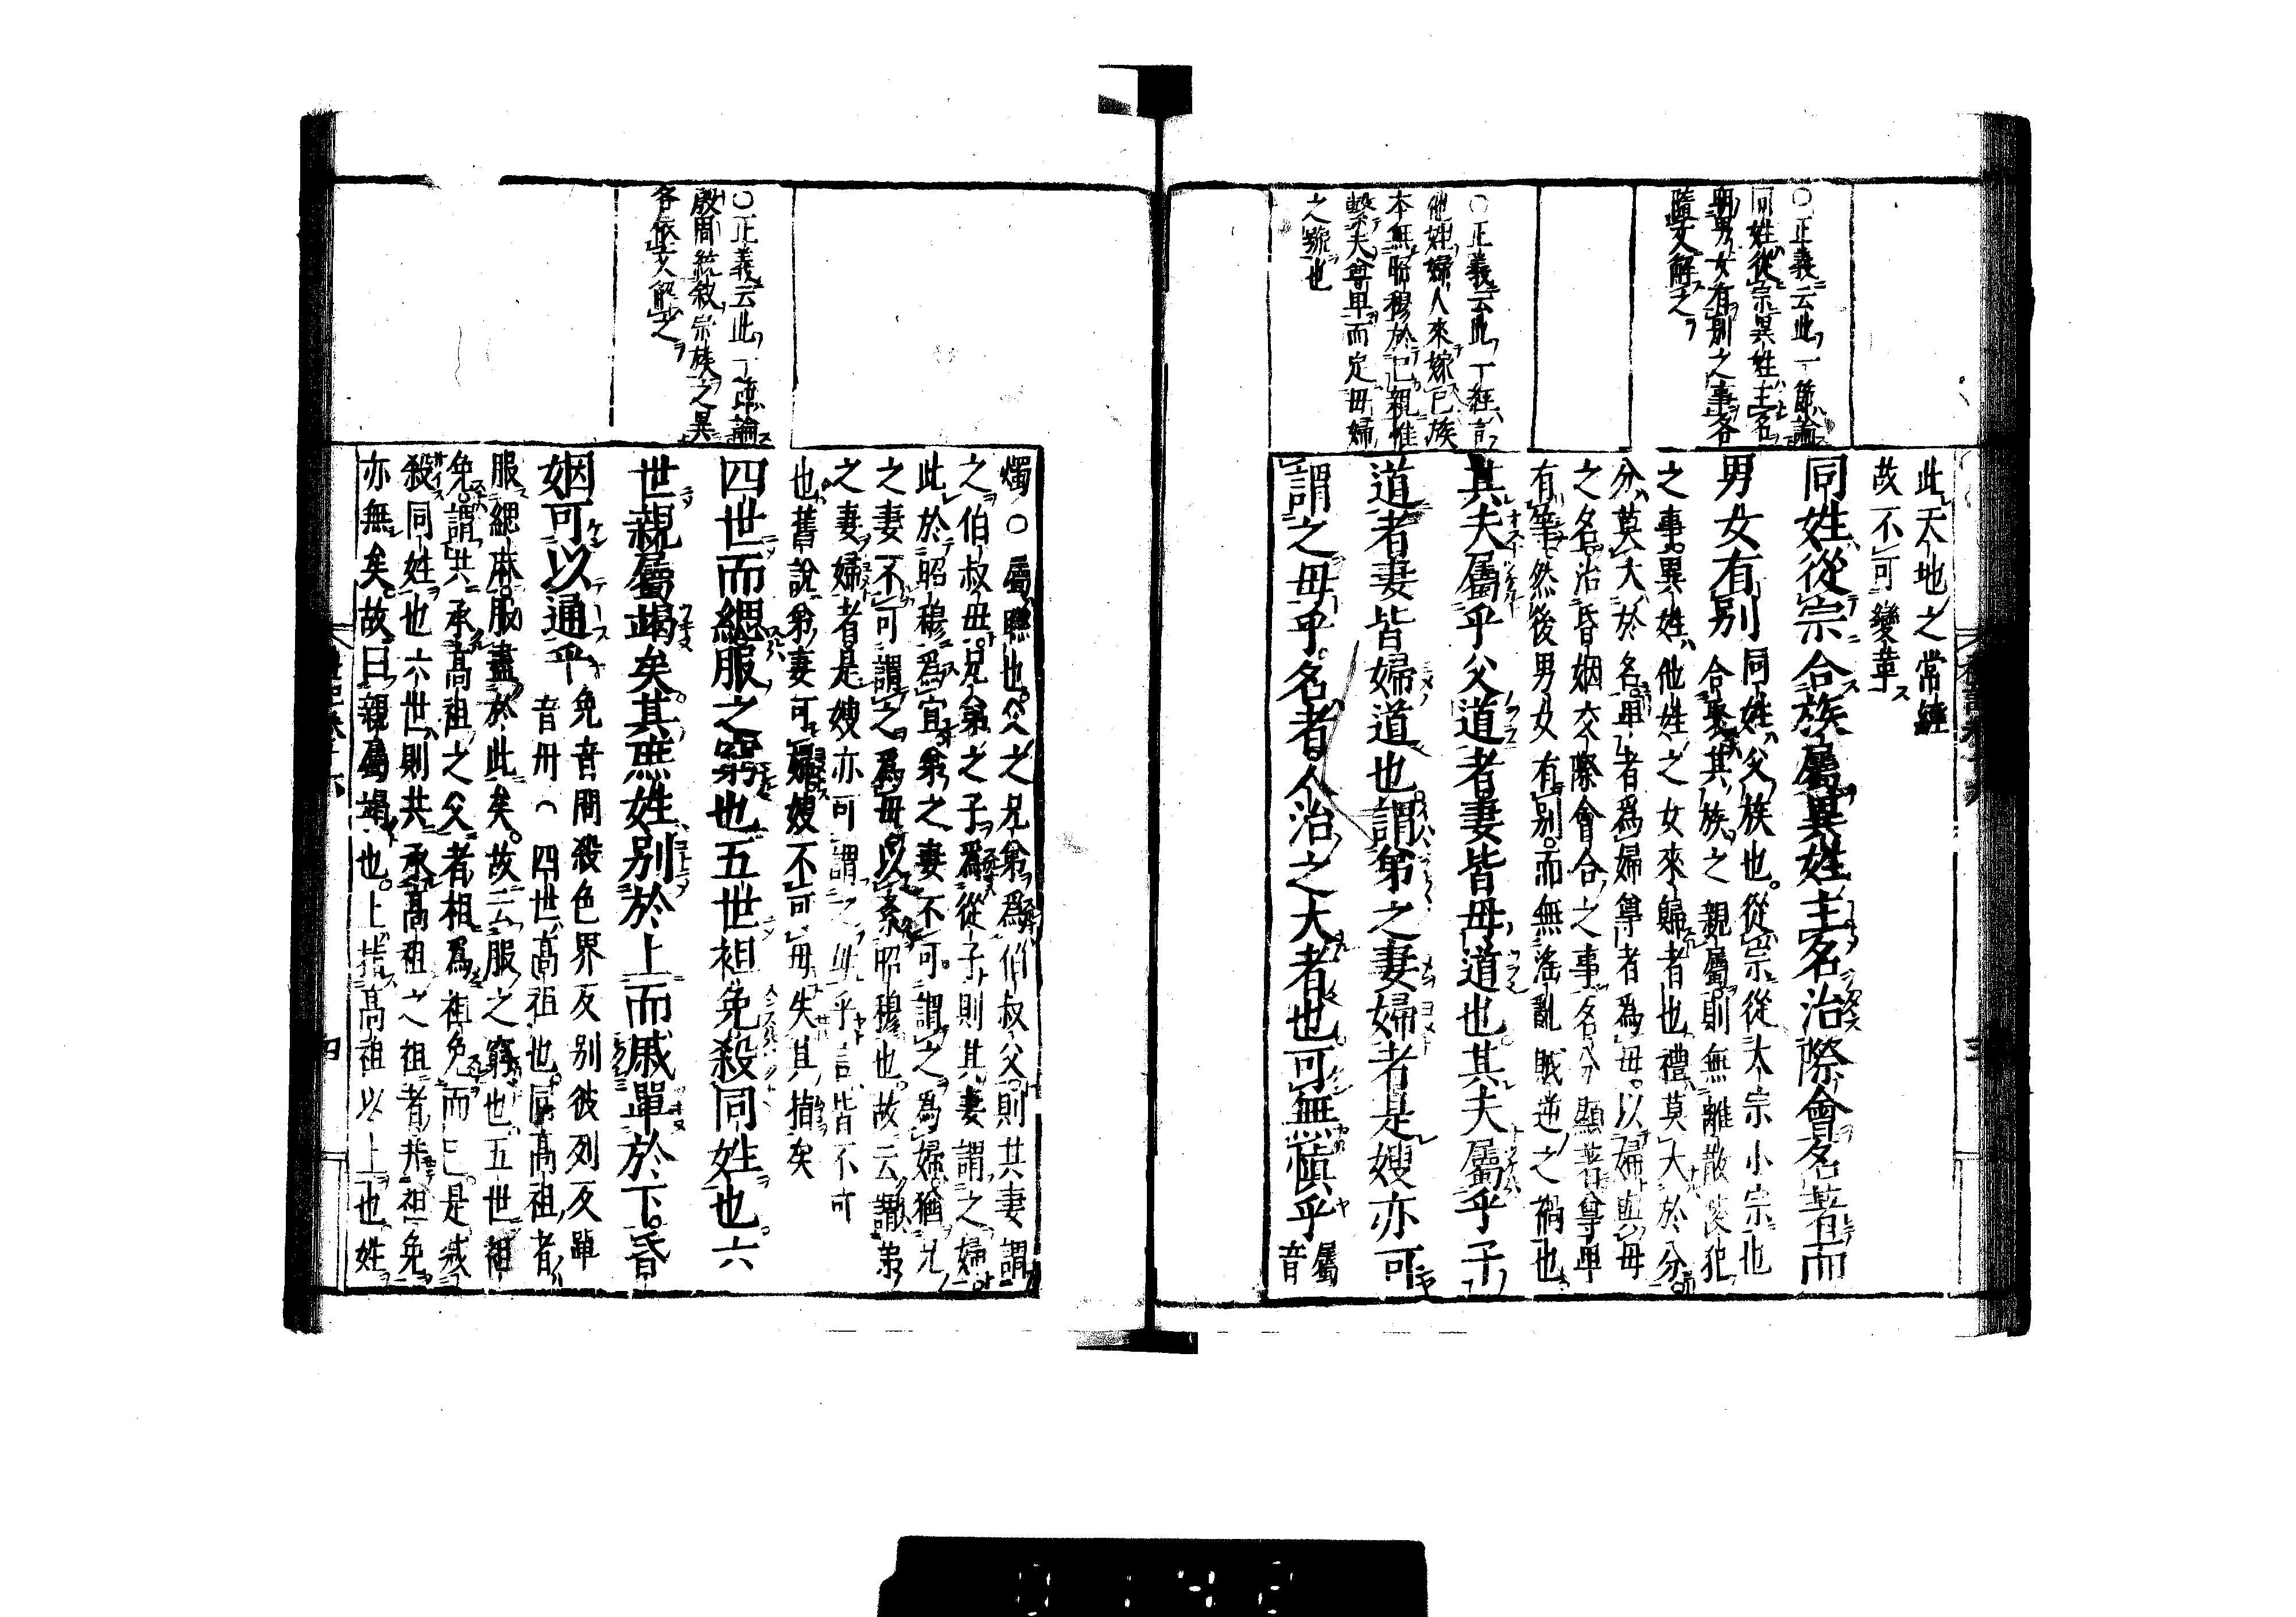 此天地之常經
故不可變革
同姓從宗合族屬異姓主名治際會名著而
男女有別
同姓父族也從宗從大宗小宗也
合聚其族之親屬則無離散陵犯
之事異姓他姓之女來歸者也禮莫大於分
分莫大於名卑者爲婦尊者爲母以婦與母
之名治昏姻交際會合之事名分顯著尊卑
有等然後男女有別而無淫亂賊逆之禍也
其夫屬乎父道者妻皆母道也其夫屬乎子
道者妻皆婦道也謂弟之妻婦者是嫂亦可
謂之母乎名者人治之大者也可無愼乎
屬音
○正義云此一節論
同姓從宗異姓主名
明男女有別之事各
隨文解之
○正義云此一經言
他姓婦人來嫁已族
本無昭穆於已親惟
繫夫尊卑而定母婦
之號也
燭○屬聯也父之兄弟爲伯叔父則其妻謂
之伯叔母兄弟之子爲從子則其妻謂之婦
此於昭穆爲宜弟之妻不可謂之爲婦猶兄
之妻不可謂之爲母以紊昭穆也故云謂弟
之妻婦者是嫂亦可謂之母乎言皆不可
也舊說弟妻可婦嫂不可母失其指矣
四世而緦服之窮也五世袒免殺同姓也六
世親屬竭矣其庶姓別於上而戚單於下昏
姻可以通乎
免音問殺色界反別彼列反單
音丹 四世高祖也同高祖者
服緦麻服盡於此矣故云服之窮也五世袒
免謂共承高祖之父者相爲袒免而已是減
殺同姓也六世則共承高祖之祖者幷袒免
亦無矣故曰親屬竭也上指高祖以上也姓
四
○正義云此一節論
殷周統敘宗族之異
各依文解之